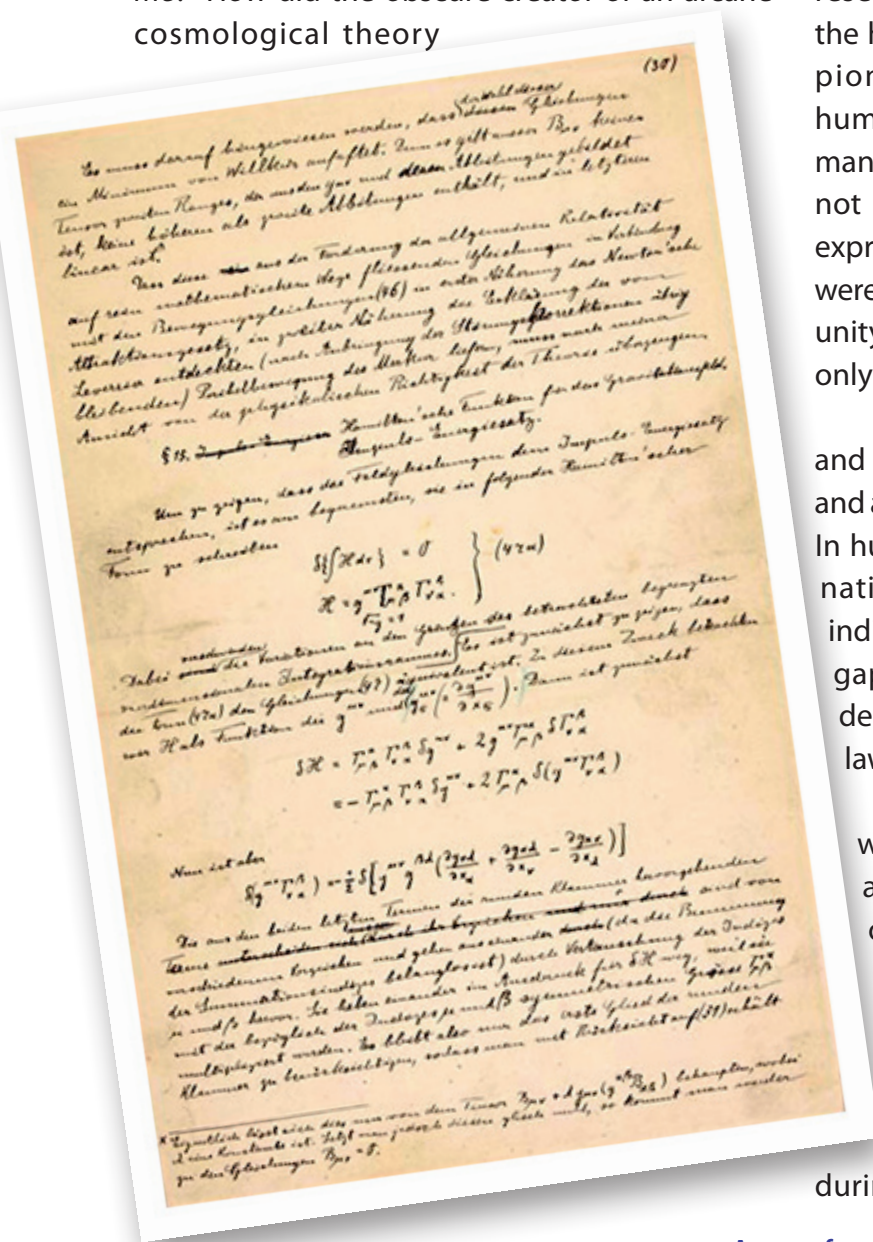 cosmological theory
(30)
Es muss darauf hingewiesen werden, dass der Wahl dieser Gleichungen
ein Minimum von Willkür anhaftet. Denn es gibt ausser Bμν keinen
Tensor zweiten Ranges, der aus den gμν und deren Ableitungen gebildet
ist, keine höheren als zweite Ableitungen enthält, und in letzteren
linear ist.*
Dass diese aus der Forderung der allgemeinen Relativität
auf rein mathematischem Wege fliessenden Gleichungen in Verbindung
mit den Bewegungsgleichungen (46) in erster Näherung das Newton'sche
Attraktionsgesetz, in zweiter Näherung die Erklärung der von
Leverrier entdeckten (nach Anbringung der Störungskorrektionen übrig
bleibenden) Perihelbewegung des Merkur liefern, muss nach meiner
Ansicht von der physikalischen Richtigkeit der Theorie überzeugen.
§15. Hamilton'sche Funktion für das Gravitationsfeld.
Impuls-Energiesatz.
Um zu zeigen, dass die Feldgleichungen dem Impuls-Energiesatz
entsprechen, ist es am bequemsten, sie in folgender Hamilton'scher
Form zu schreiben
δ{∫H dτ} = 0 } (47a)
H = g^μν Γ^α_μβ Γ^β_να
√-g = 1
Dabei verschwinden die Variationen an den Grenzen des betrachteten begrenzten
vierdimensionalen Integrationsraumes. Es ist zunächst zu zeigen, dass
die Form (47a) den Gleichungen (47) äquivalent ist. Zu diesem Zweck betrachten
wir H als Funktion der g^μν und g^μν_σ (= ∂g^μν/∂x_σ). Dann ist zunächst
δH = Γ^α_μβ Γ^β_να δg^μν + 2 g^μν Γ^α_μβ δΓ^β_να
= - Γ^α_μβ Γ^β_να δg^μν + 2 Γ^α_μβ δ(g^μν Γ^β_να)
Nun ist aber
δ(g^μν Γ^β_να) = -½ δ[g^μν g^βλ (∂g_νλ/∂x_α + ∂g_αλ/∂x_ν - ∂g_αν/∂x_λ)]
Die aus den beiden letzten Termen der runden Klammer hervorgehenden
Terme sind von
verschiedenem Vorzeichen und gehen auseinander (da die Benennung
der Summationsindizes belanglos ist) durch Vertauschung der Indizes
μ und β hervor. Sie heben einander im Ausdruck für δH weg, weil sie
mit der bezüglich der Indizes μ und β symmetrischen Grösse Γ^α_μβ
multipliziert werden. Es bleibt also nur das erste Glied der runden
Klammer zu berücksichtigen, sodass man mit Rücksicht auf (31) erhält
* Eigentlich lässt sich dies nur von dem Tensor Bμν + λ gμν (g^αβ Bαβ) behaupten, wobei
λ eine Konstante ist. Setzt man jedoch diesen gleich null, so kommt man wieder
zu den Gleichungen Bμν = 0.
the
hum
man
not
expr
were
unity
only
and
and a
In hu
nati
ind
gap
de
law
w
a
durin